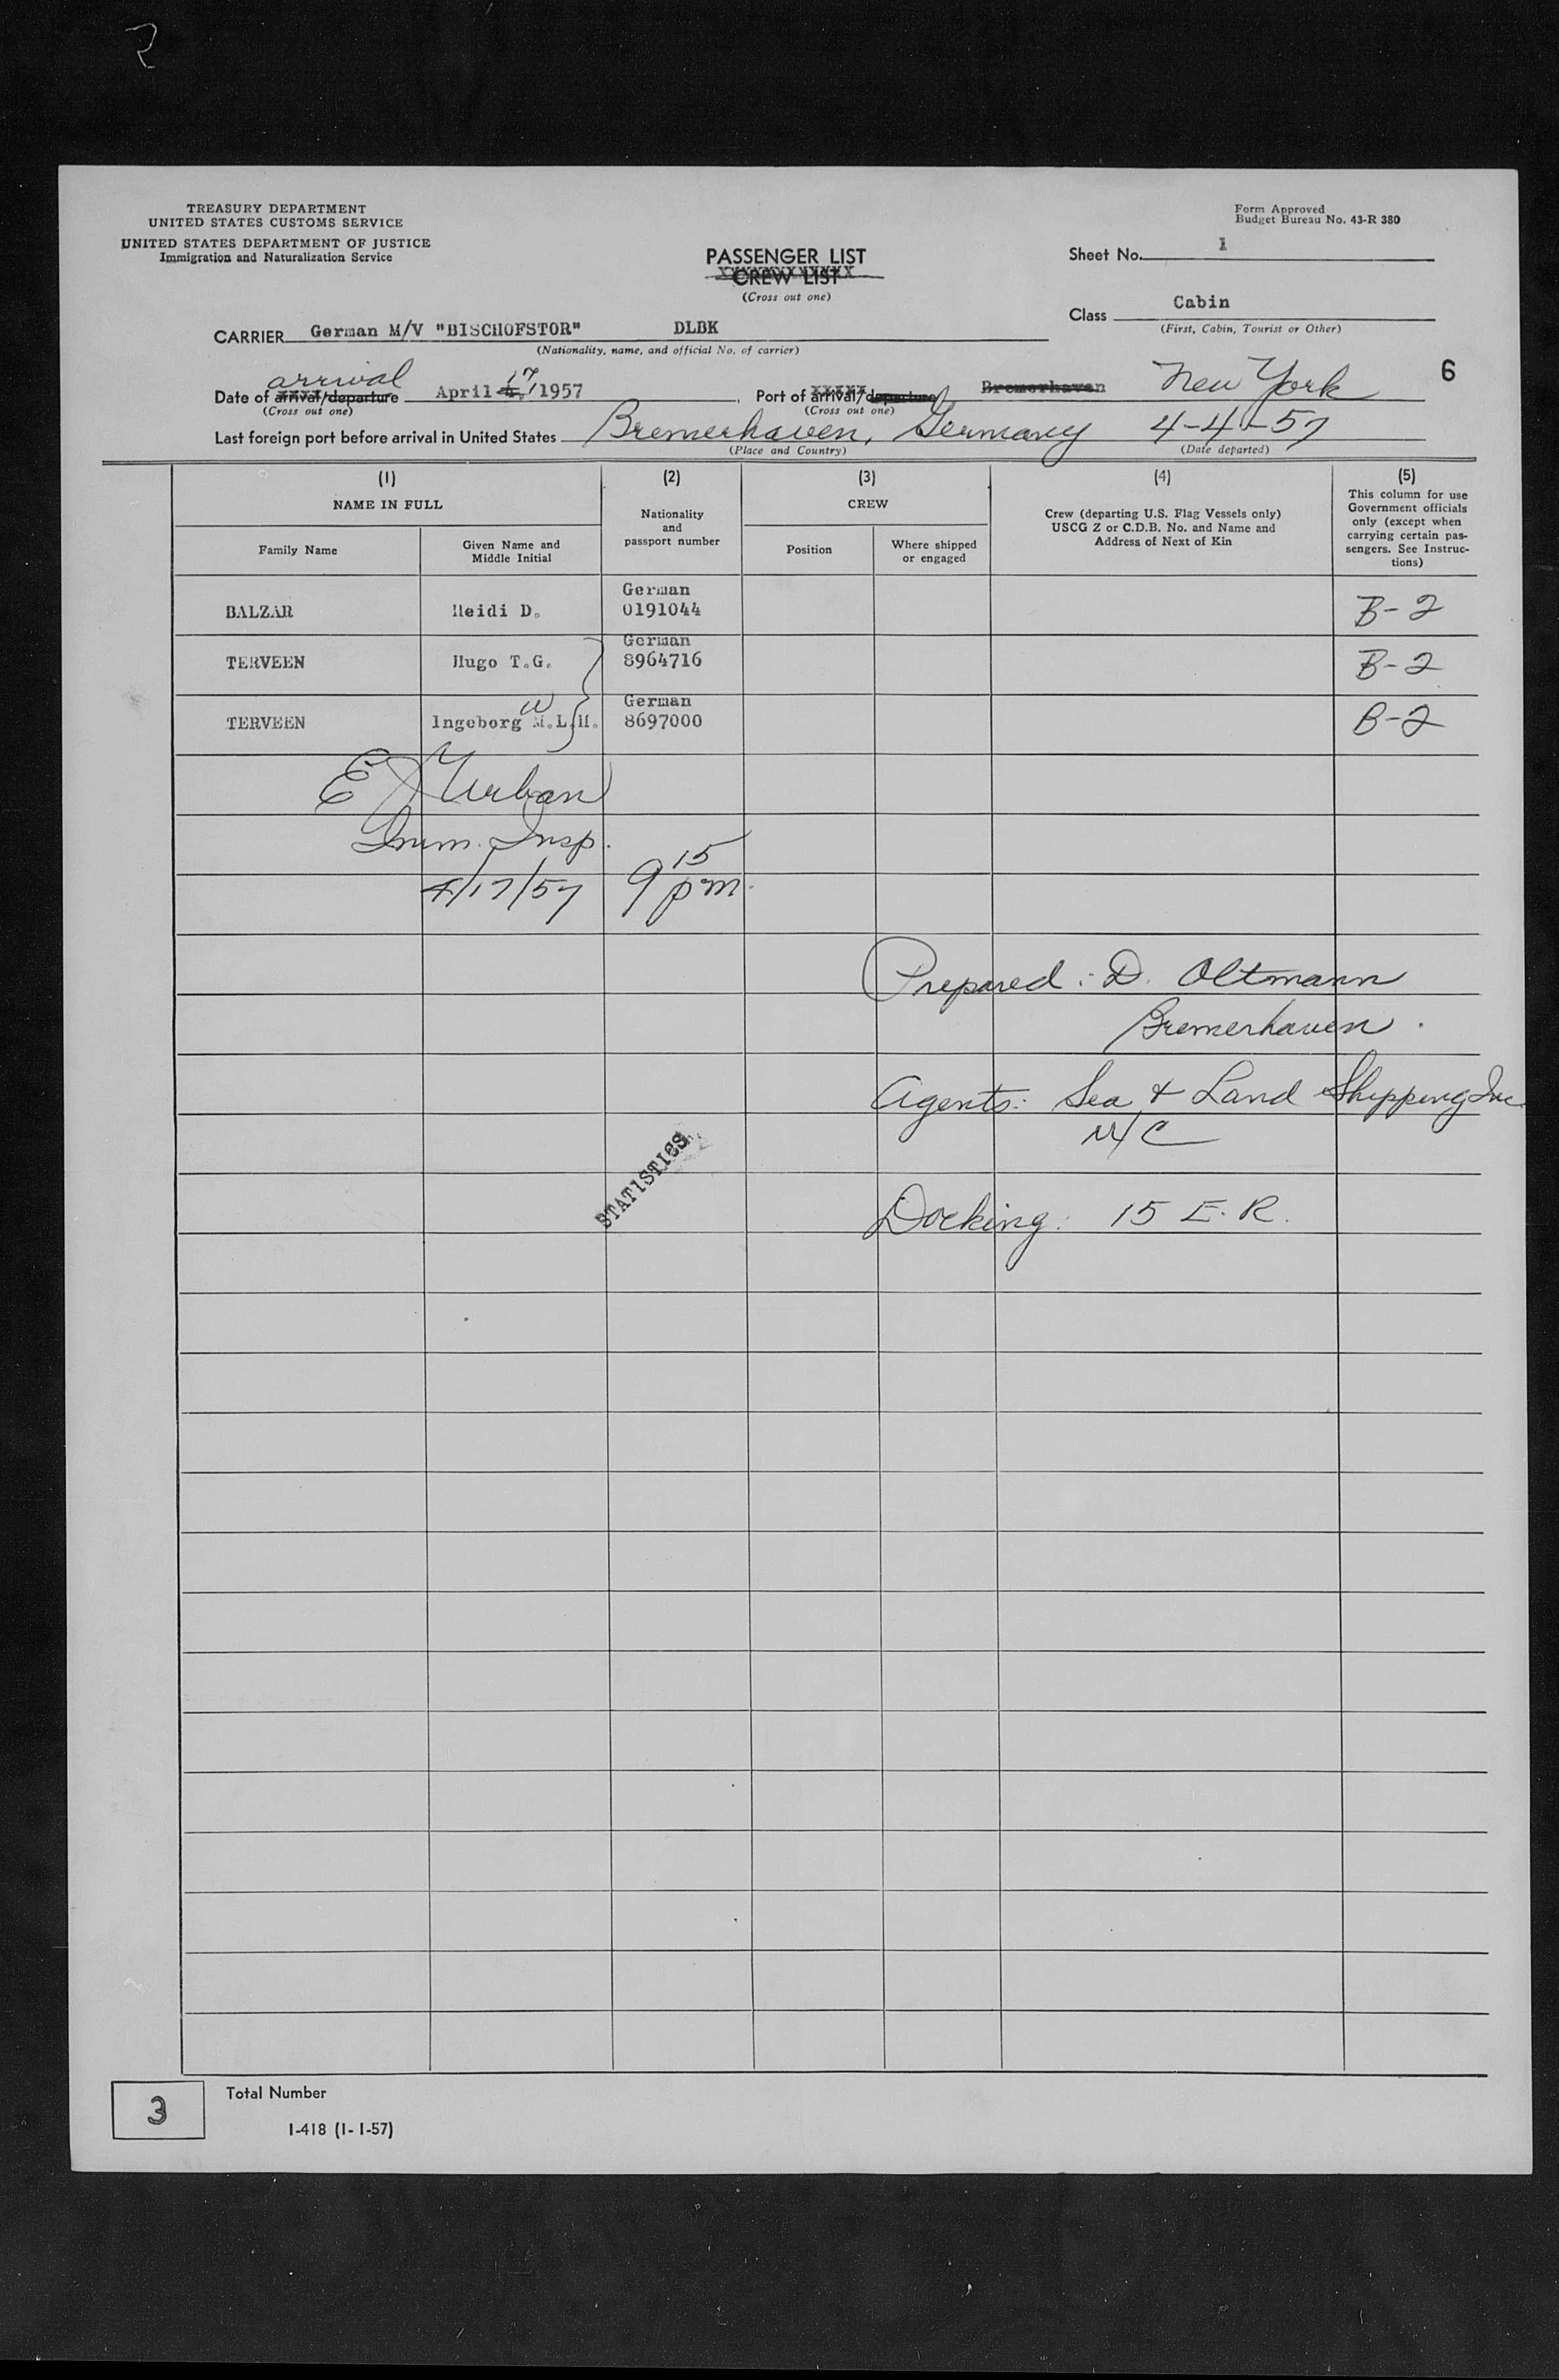 2
TREASURY DEPARTMENT
UNITED STATES CUSTOMS SERVICE
UNITED STATES DEPARTMENT OF JUSTICE
Immigration and Naturalization Service
Form Approved
Budget Bureau No. 43-R 380
PASSENGER LIST
CREW LIST
(Cross out one)
Sheet No. 1
Class Cabin
(First, Cabin, Tourist or Other)
CARRIER German M/V "BISCHOFSTOR" DLBK
(Nationality, name, and official No. of carrier)
6
arrival
Date of arrival/departure April 4, 17 1957, Port of arrival/departure Bremerhaven New York
(Cross out one) (Cross out one)
Last foreign port before arrival in United States Bremerhaven, Germany 4-4-57
(Place and Country) (Date departed)
(1) (2) (3) (4) (5)
NAME IN FULL
Nationality and passport number
CREW
Crew (departing U.S. Flag Vessels only)
USCG Z or C.D.B. No. and Name and
Address of Next of Kin
This column for use
Government officials
only (except when
carrying certain pas-
sengers. See Instruc-
tions)
Family Name
Given Name and
Middle Initial
Position
Where shipped
or engaged
German
BALZAR Heidi D. 0191044 B-2
German
TERVEEN Hugo T.G. 8964716 B-2
W German
TERVEEN Ingeborg M.L.H. 8697000 B-2
E J Urban
Imm. Insp.
4/17/57 9 15 pm.
Prepared: D. Oltmann
Bremerhaven.
Agents: Sea & Land Shipping Inc
NYC
STATISTICS
Docking: 15 E. R.
3
Total Number
I-418 (1-1-57)